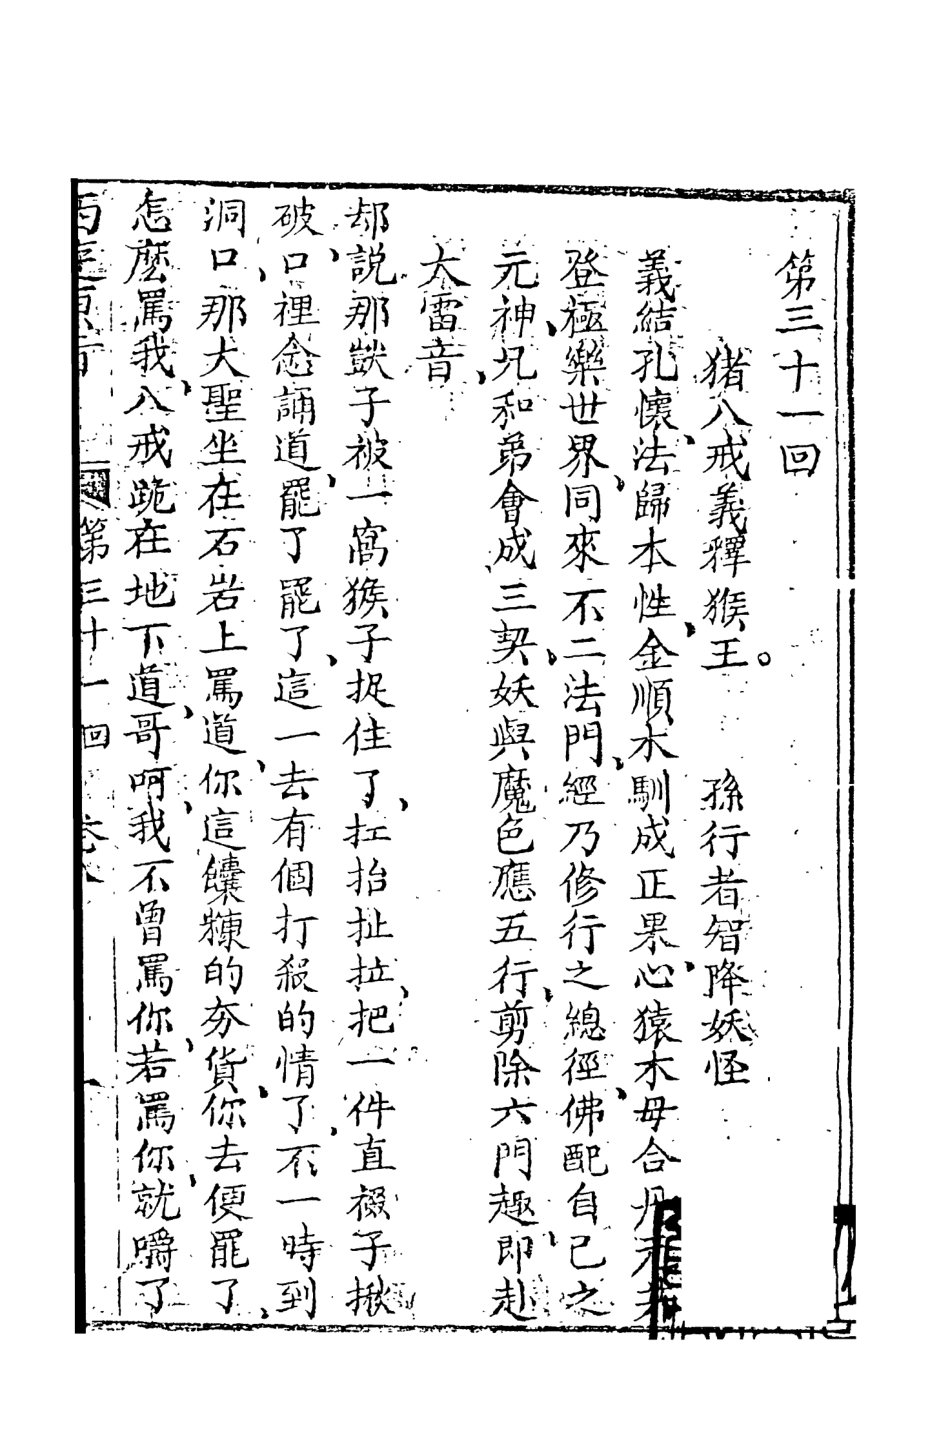 第三十一回
猪八戒義釋猴王。 孫行者智降妖怪
義結孔懷、法歸本性、金順木馴成正果、心猿木母合丹元、共
登極樂世界、同來不二法門、經乃修行之總徑、佛配自己之
元神、兄和弟會成三契、妖與魔色應五行、剪除六門趣、即赴
大雷音、
却說那獃子被一窩猴子捉住了、扛抬扯拉、把一件直裰子揪
破、口裡念誦道、罷了罷了、這一去有個打殺的情了、不一時到
洞口、那大聖坐在石岩上罵道、你這饢糠的夯貨、你去便罷了、
怎麼罵我、八戒跪在地下道、哥呵、我不曾罵你、若罵你、就嚼了
第三十一回